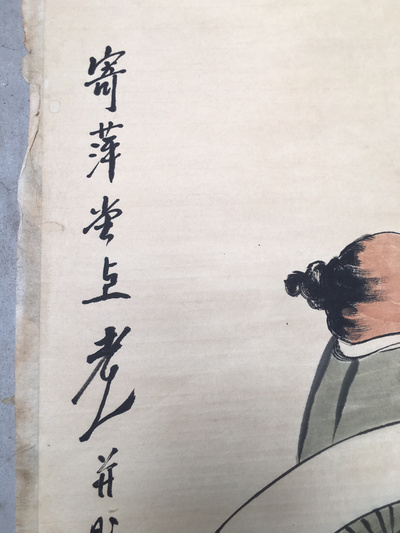 寄萍堂上老人并